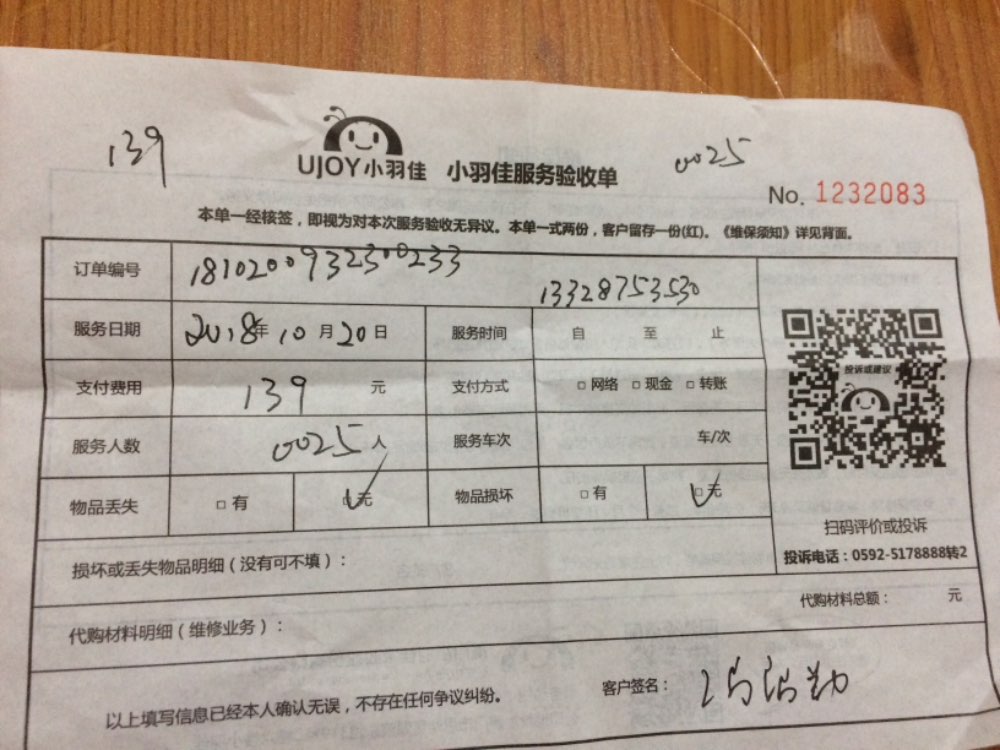 139
0025
UJOY小羽佳 小羽佳服务验收单
No. 1232083
本单一经核签，即视为对本次服务验收无异议。本单一式两份，客户留存一份(红)。《维保须知》详见背面。
订单编号 1810200932300233
13328753530
服务日期 2018年10月20日 服务时间 自 至 止
支付费用 139 元 支付方式 □网络 □现金 □转账
服务人数 0025人 服务车次 车/次
物品丢失 □有 □无 物品损坏 □有 □无
投诉或建议
扫码评价或投诉
投诉电话：0592-5178888转2
损坏或丢失物品明细（没有可不填）：
代购材料总额： 元
代购材料明细（维修业务）：
以上填写信息已经本人确认无误，不存在任何争议纠纷。
客户签名：